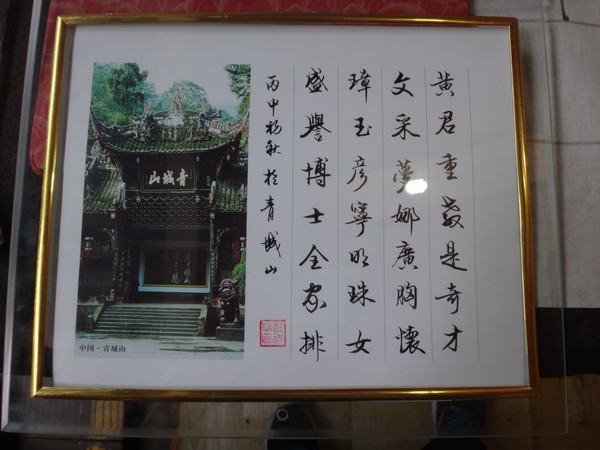 黄君重义是奇才
文采梦娜廣胸懷
璋玉彦寧明珠女
盛譽博士全家排
丙申初秋於青城山
青城山
中国·青城山